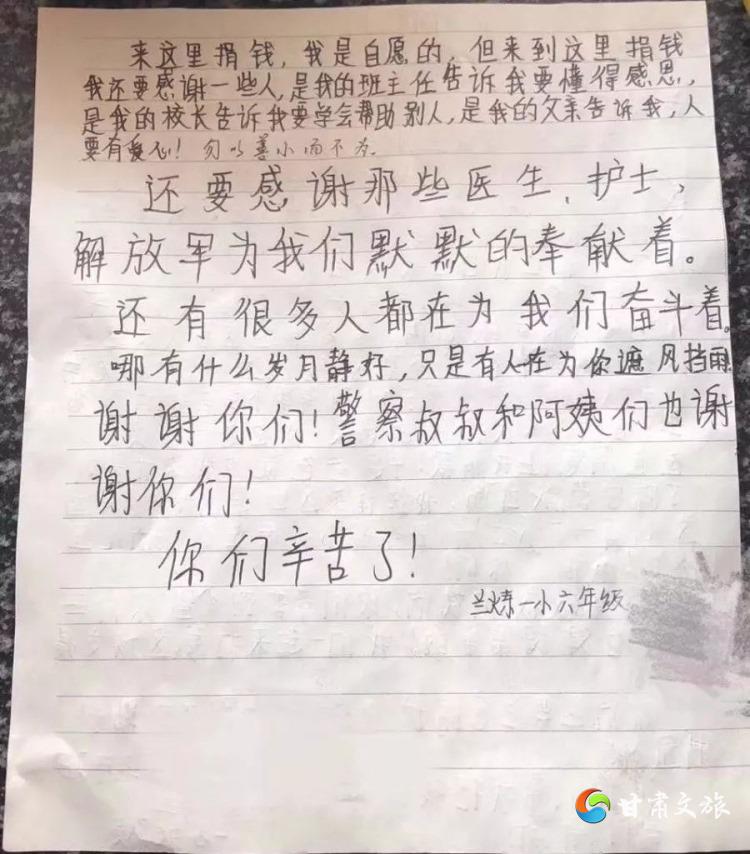 来这里捐钱，我是自愿的，但来到这里捐钱
我还要感谢一些人，是我的班主任告诉我要懂得感恩，
是我的校长告诉我要学会帮助别人，是我的父亲告诉我，人
要有爱心！勿以善小而不为。
还要感谢那些医生、护士、
解放军为我们默默的奉献着。
还有很多人都在为我们奋斗着。
哪有什么岁月静好，只是有人在为你遮风挡雨
谢谢你们！警察叔叔和阿姨们也谢
谢你们！
你们辛苦了！
兰炼一小六年级
甘肃文旅